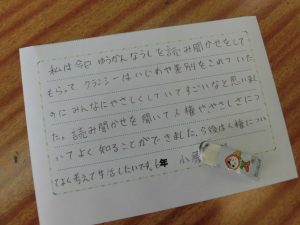 私は今日ゆうかんなうしを読み聞かせをして
もらって クランシーはいじめや差別をされていた
のにみんなにやさしくしていてすごいなと思いまし
た。読み聞かせを聞いて人権ややさしさにつ
いてよく知ることができました。今後は人権につい
てよく考えて生活したいです。6年 小